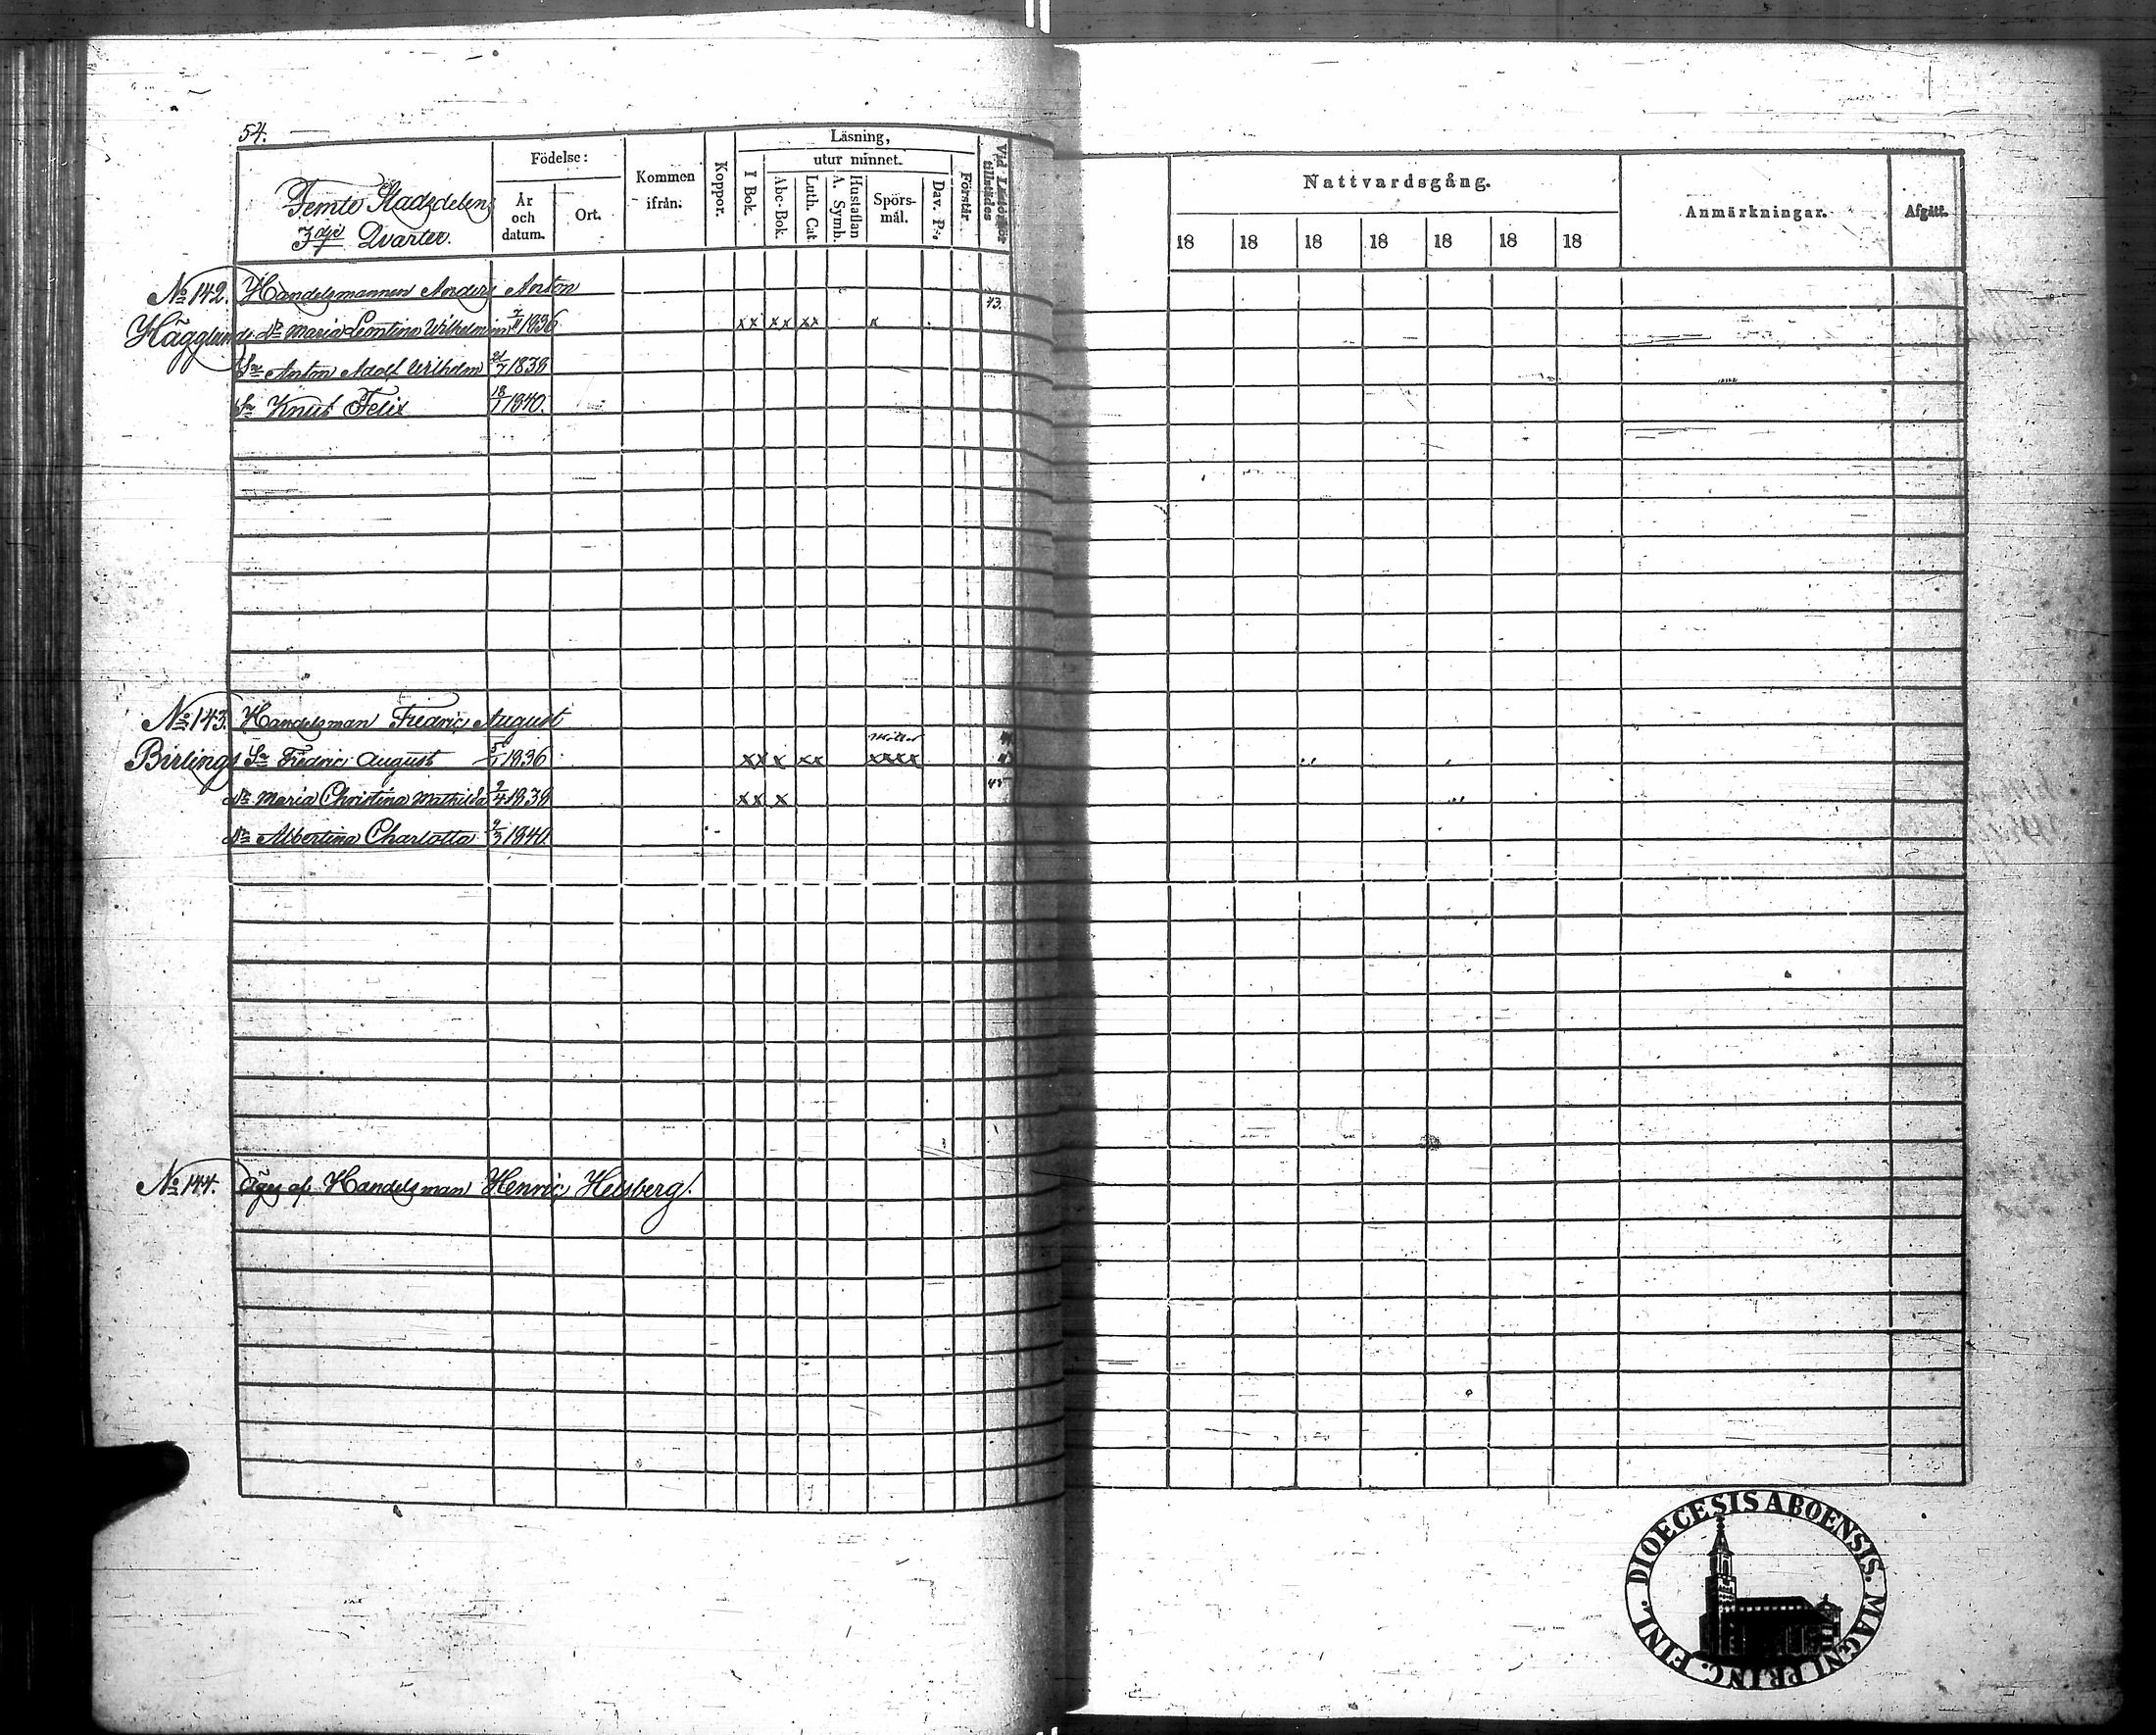 54.
Femte Stadsdelens
3dje Qvarter.
Födelse:
År och datum.
Ort.
Kommen ifrån:
Koppor.
Läsning,
I Bok.
utur minnet.
Abc-Bok.
Luth. Cat.
Hustaflan A. Symb.
Spörs-mål.
Dav. Ps.
Förstår.
Vid Läsförhör tillstädes
Nattvardsgång.
18 18 18 18 18 18 18
Anmärkningar.
Afgått.
No 142. Handelsmannen Anders Anton
43.
Hägglunds Dr Maria Leontina 1836 xx xx xx x
Sn Anton Adolf Wilhelm 21/7 1838
Sn Knut Felix 18/1 1840.
No 143. Handelsman Fredric August
Birlings Sn Fredric August 5/1 1836 xx x xx xxxx
Dr Maria Christina Mathilda 9/4 1838 xx x 45
Dr Albertina Charlotta 9/3 1840.
No 144. Äges af Handelsman Henric Helsberg.
DIOECESIS ABOENSIS. MAGNI PRINC. FINL.